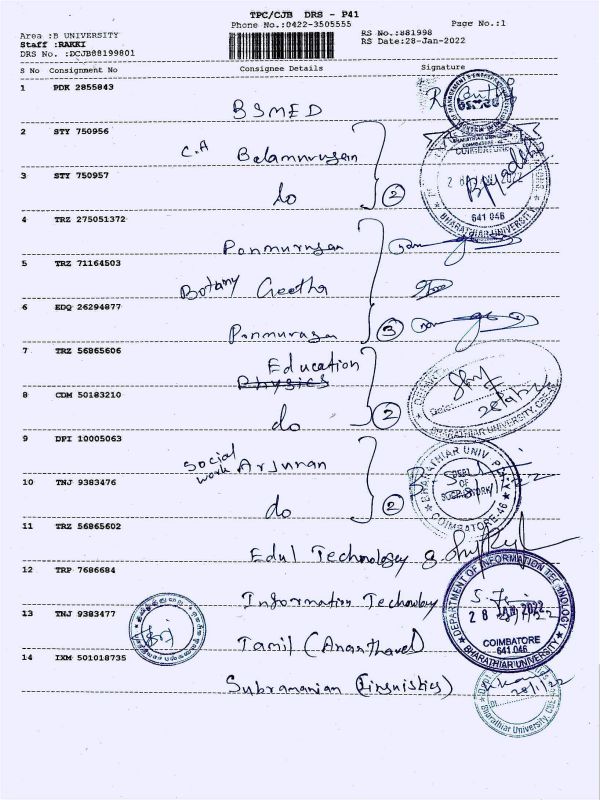 TPC/CJB DRS - P41
Phone No.:0422-3505555
Page No.:1
Area :B UNIVERSITY
Staff :RAKKI
DRS No. :DCJB88199801
RS No.:881998
RS Date:28-Jan-2022
S No Consignment No Consignee Details Signature
1 PDK 2855843
BSMED
2 STY 750956
C.A Balamurugan
3 STY 750957
do 2
4 TRZ 275051372
Ponmurugan
5 TRZ 71164503
Botany Geetha
6 EDQ 26294877
Ponmurugan 3
7 TRZ 56865606
Education
Physics
8 CDM 50183210
do 2
9 DPI 10005063
Social work Arjunan
10 TNJ 9383476
do 2
11 TRZ 56865602
Edul Technology
12 TRP 7686684
Information Technology
13 TNJ 9383477
Tamil (Ananthavel)
14 IXM 501018735
Subramanian (Linguistics)
COIMBATORE
641 046
BHARATHIAR UNIVERSITY
Date:
BHARATHIAR UNIVERSITY, CBE
BHARATHIAR UNIV
DEPT OF SOCIAL WORK
COIMBATORE-46
DEPARTMENT OF INFORMATION TECHNOLOGY
28 JAN 2022
COIMBATORE
641 046
BHARATHIAR UNIVERSITY
28/1/22
Bharathiar University, CBE